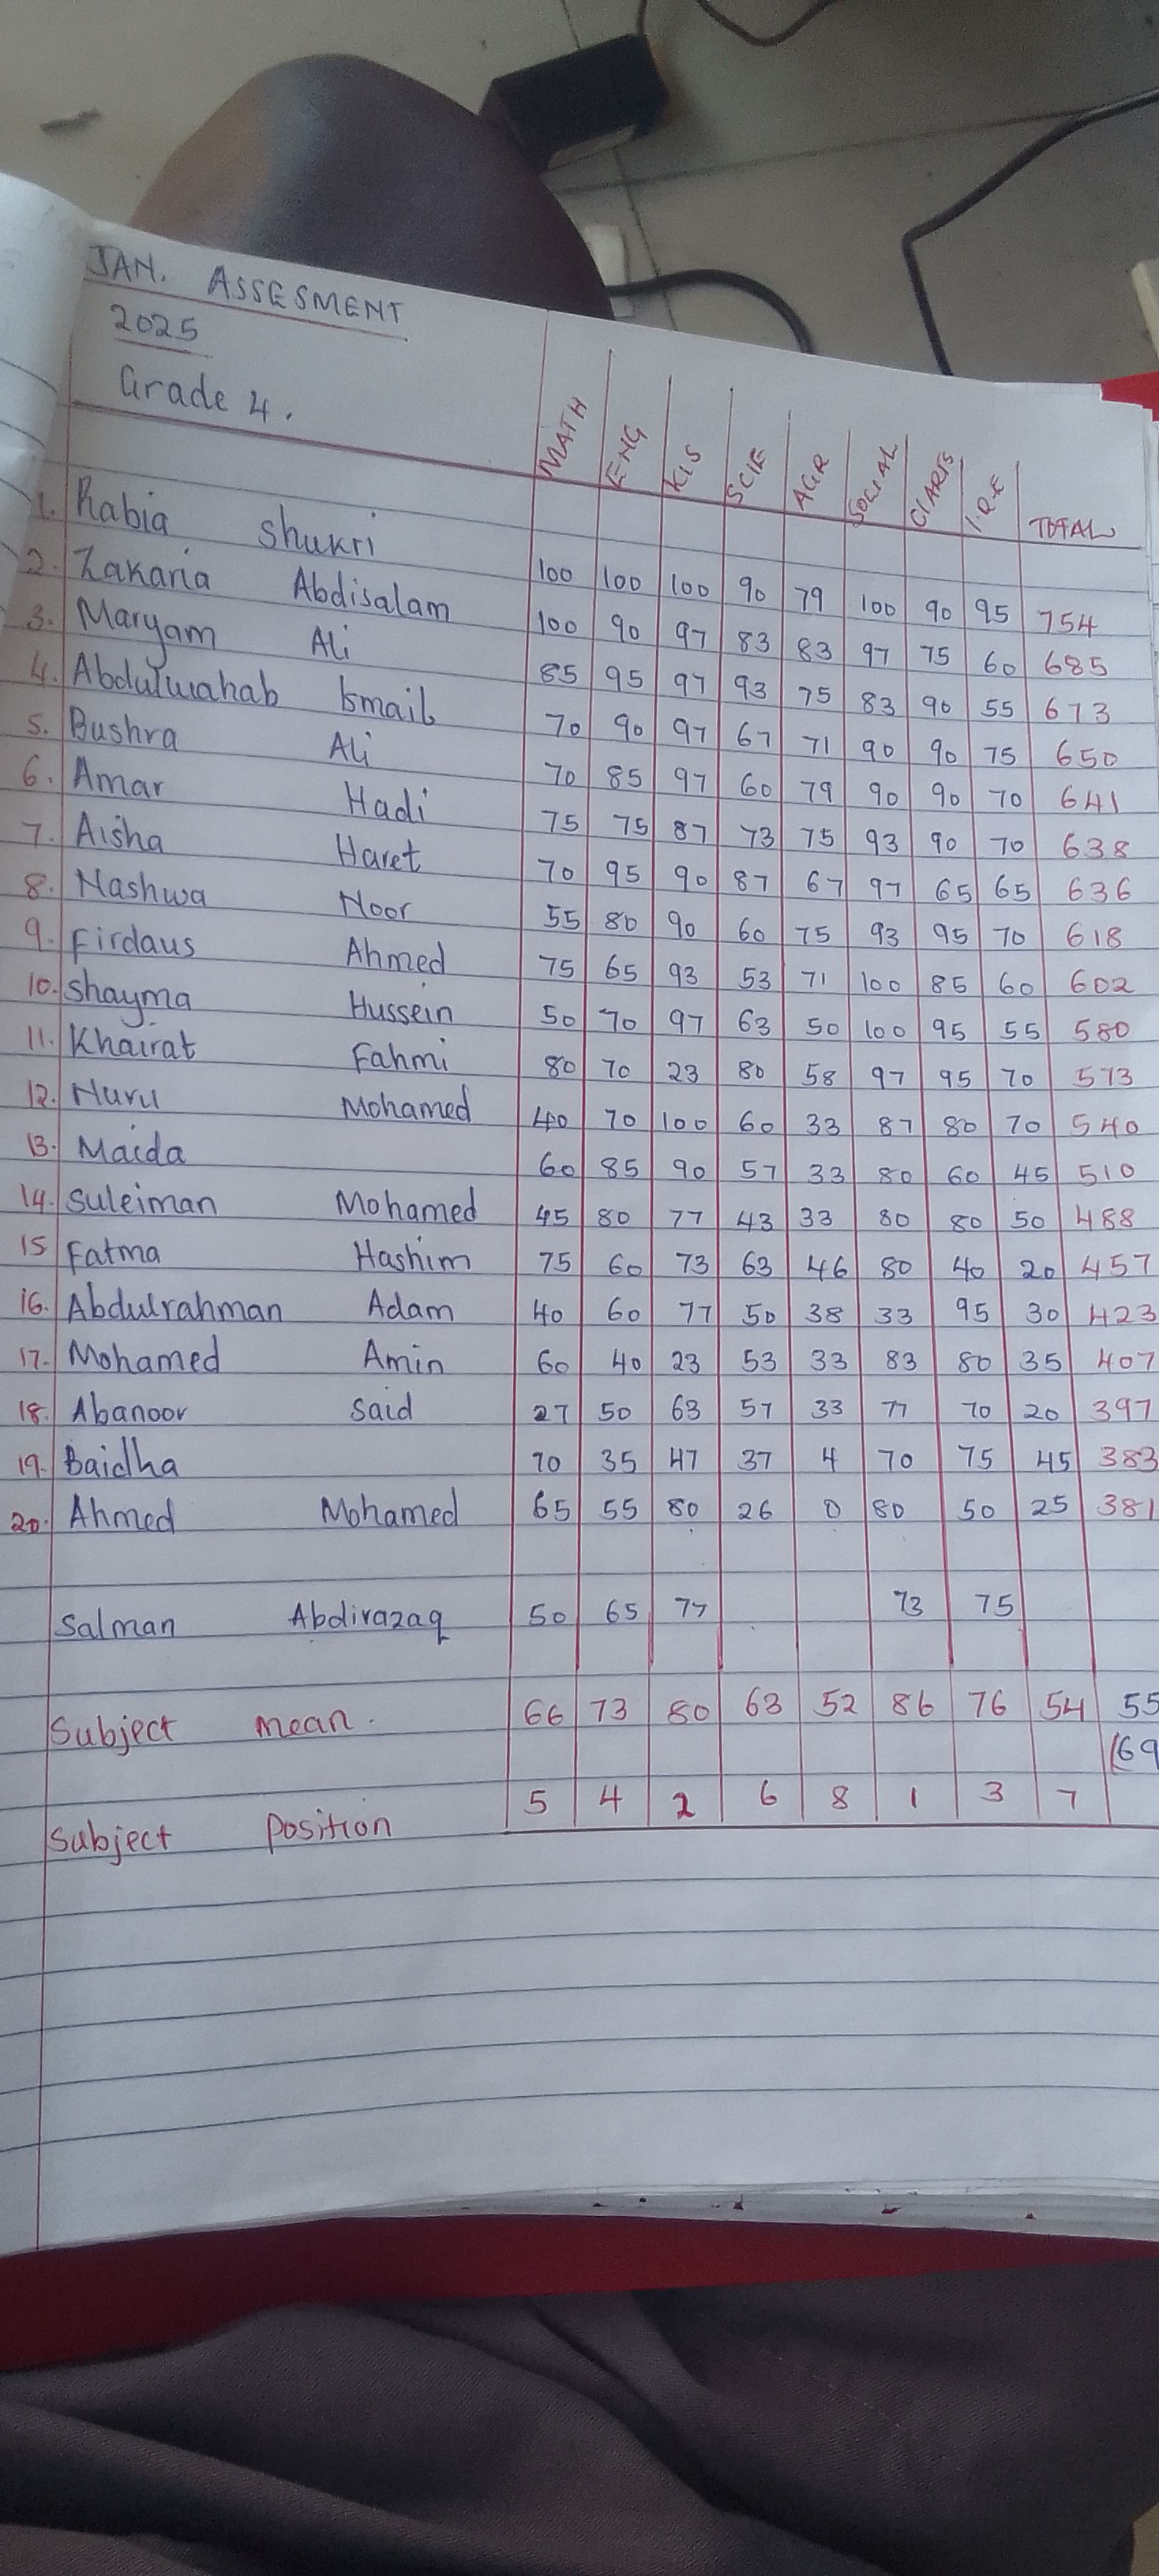 JAN. ASSESMENT
2025
Grade 4.
MATH ENG KIS SCIE AGR SOCIAL C/ARTS I.R.E TOTAL
1. Rabia Shukri 100 100 100 90 79 100 90 95 754
2. Zakaria Abdisalam 100 90 97 83 83 97 75 60 685
3. Maryam Ali 85 95 97 93 75 83 90 55 673
4. Abdulwahab Ismail 70 90 97 67 71 90 90 75 650
5. Bushra Ali 70 85 97 60 79 90 90 70 641
6. Amar Hadi 75 75 87 73 75 93 90 70 638
7. Aisha Haret 70 95 90 87 67 97 65 65 636
8. Nashwa Noor 55 80 90 60 75 93 95 70 618
9. Firdaus Ahmed 75 65 93 53 71 100 85 60 602
10. Shayma Hussein 50 70 97 63 50 100 95 55 580
11. Khairat Fahmi 80 70 23 80 58 97 95 70 573
12. Nuru Mohamed 40 70 100 60 33 87 80 70 540
13. Maida 60 85 90 57 33 80 60 45 510
14. Suleiman Mohamed 45 80 77 43 33 80 80 50 488
15 Fatma Hashim 75 60 73 63 46 80 40 20 457
16. Abdulrahman Adam 40 60 77 50 38 33 95 30 423
17. Mohamed Amin 60 40 23 53 33 83 80 35 407
18. Abanoor Said 27 50 63 57 33 77 70 20 397
19. Baidha 70 35 47 37 4 70 75 45 383
20. Ahmed Mohamed 65 55 80 26 0 80 50 25 381
Salman Abdirazaq 50 65 77 73 75
Subject mean. 66 73 80 63 52 86 76 54 55
(69
Subject position 5 4 2 6 8 1 3 7